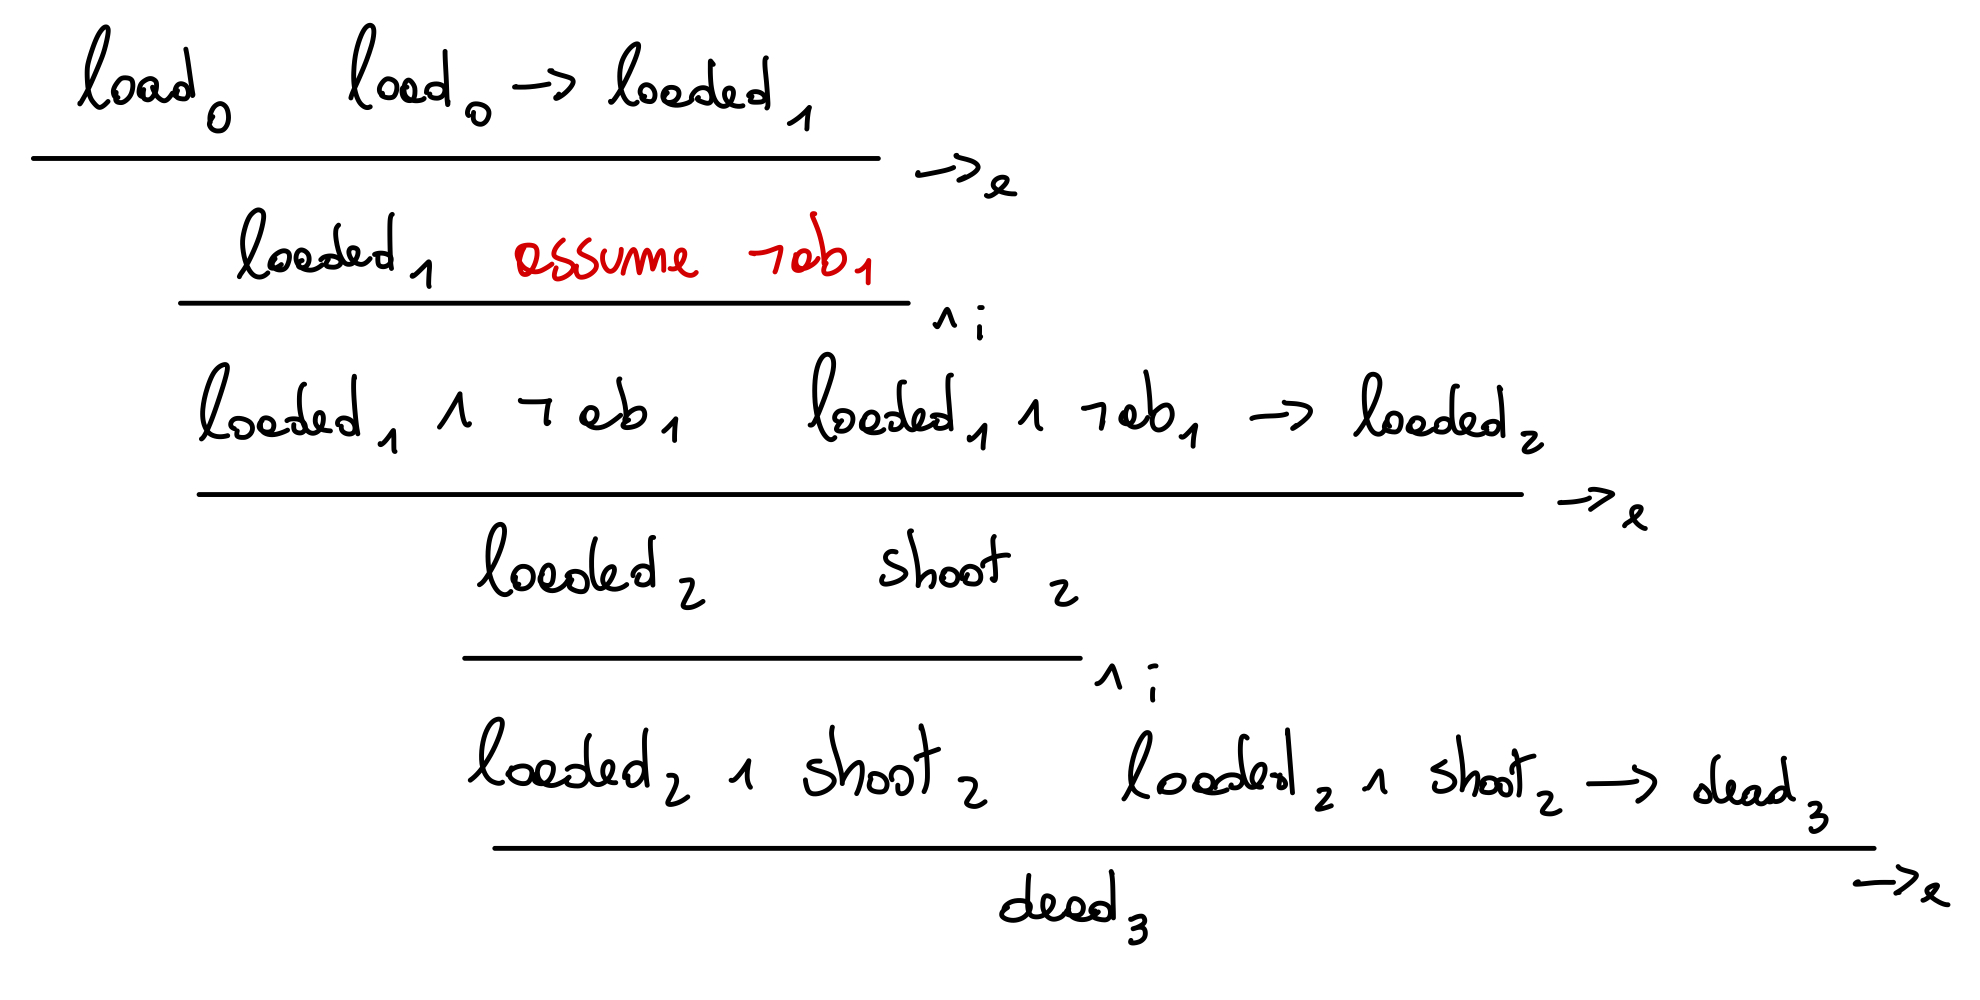 load₀ load₀ → loaded₁
→e
loaded₁ assume ¬ab₁
∧i
loaded₁ ∧ ¬ab₁ loaded₁ ∧ ¬ab₁ → loaded₂
→e
loaded₂ shoot₂
∧i
loaded₂ ∧ shoot₂ loaded₂ ∧ shoot₂ → dead₃
→e
dead₃